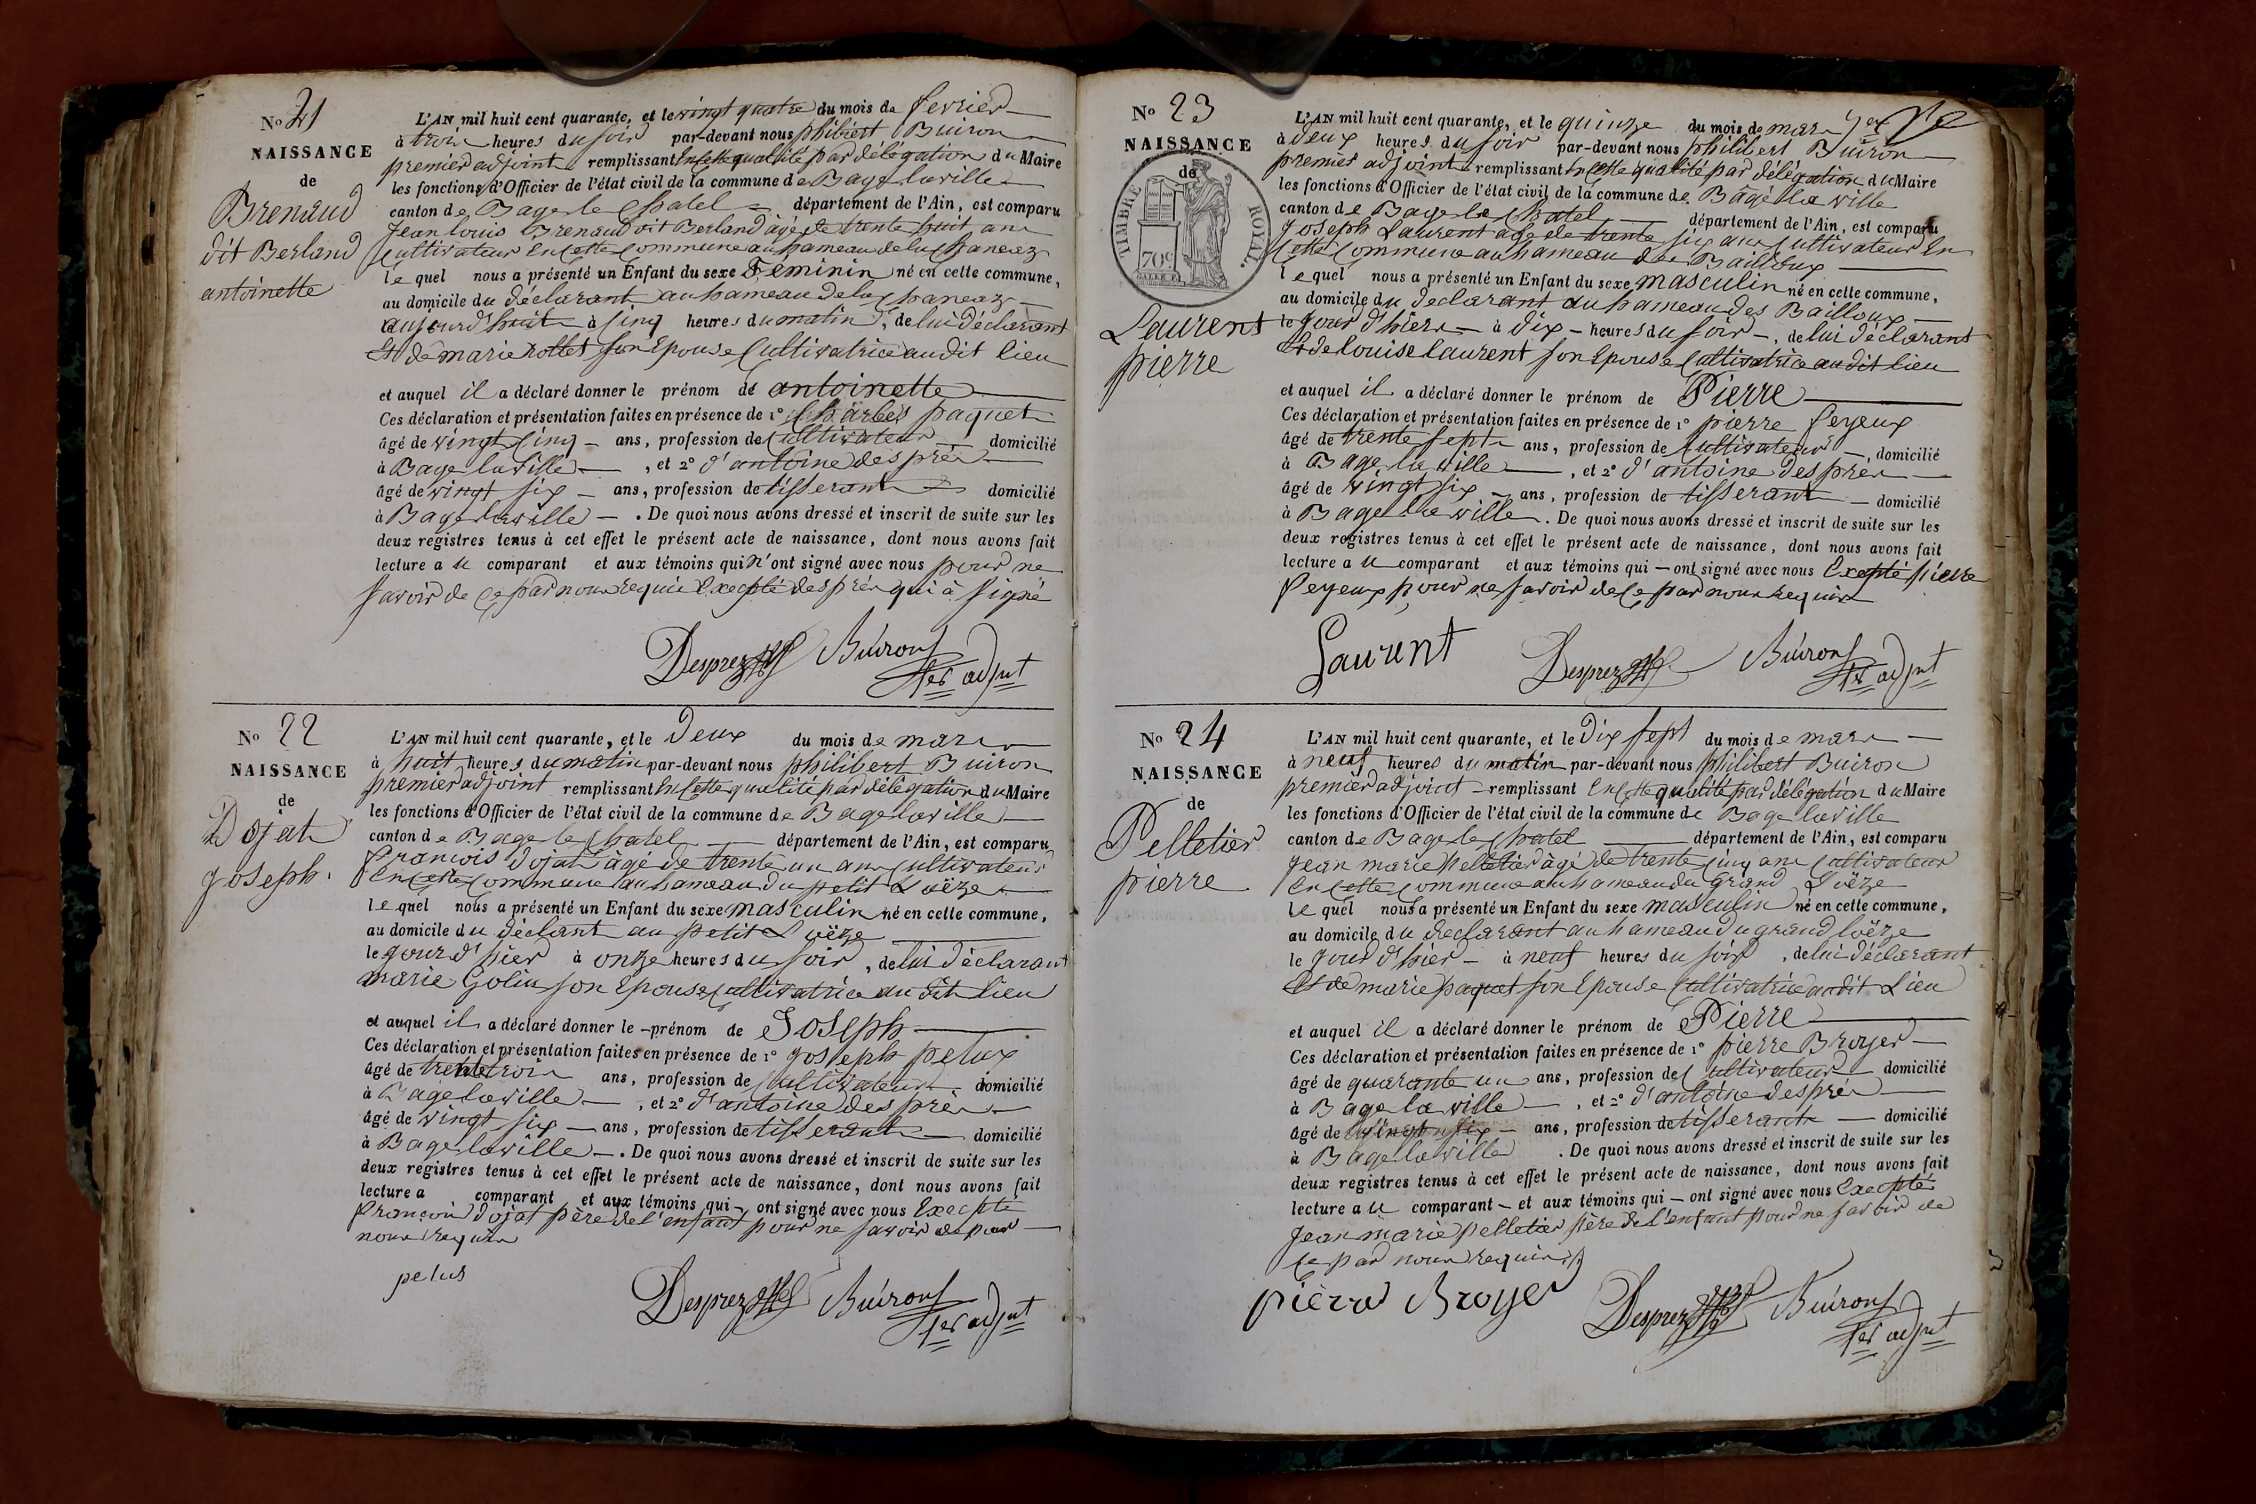 No 21
NAISSANCE
de
Brenaud
dit Berland
antoinette
L'AN mil huit cent quarante, et le vingt quatre du mois de fevrier
à trois heures du soir par-devant nous philibert Buiron
premier adjoint remplissant en cette qualité par délégation du Maire
les fonctions d'Officier de l'état civil de la commune de Bage la ville
canton de Bage le Chatel département de l'Ain, est comparu
Jean louis Brenaud dit Berland âgé de trente huit ans
Cultivateur en cette Commune au hameau de
le quel nous a présenté un Enfant du sexe Feminin né en cette commune,
au domicile du déclarant au hameau de
aujourd'huit à cinq heures du matin, de lui déclarant
Et de marie rollet son Epouse Cultivatrice audit lieu
et auquel il a déclaré donner le prénom de antoinette
Ces déclaration et présentation faites en présence de 1° Charles paquet
âgé de vingt cinq ans, profession de Cultivateur domicilié
à Bage la ville, et 2° d'antoine després
âgé de vingt six ans, profession de tisserant domicilié
à Bage la ville. De quoi nous avons dressé et inscrit de suite sur les
deux registres tenus à cet effet le présent acte de naissance, dont nous avons fait
lecture au comparant et aux témoins qui n'ont signé avec nous pour ne
savoir de ce par nous requis Excepté després qui à signé
Desprez Buiron
1er adjnt
No 22
NAISSANCE
de
Dojat
joseph.
L'AN mil huit cent quarante, et le Deux du mois de mars
à huit heures du matin par-devant nous philibert Buiron
premier adjoint remplissant en cette qualité par délégation du Maire
les fonctions d'Officier de l'état civil de la commune de Bage la ville
canton de Bage le Chatel département de l'Ain, est comparu
françois Dojat âgé de trente un ans Cultivateur
en cette Commune au hameau du petit Loëze
le quel nous a présenté un Enfant du sexe masculin né en cette commune,
au domicile du déclarant au petit Loëze
le jour d'hier à onze heures du soir, de lui déclarant
marie Golin son Epouse Cultivatrice au dit lieu
et auquel il a déclaré donner le prénom de Joseph
Ces déclaration et présentation faites en présence de 1° joseph pelux
âgé de trente trois ans, profession de Cultivateur domicilié
à Bage la ville, et 2° d'antoine desprès
âgé de vingt six ans, profession de tisserant domicilié
à Bage la ville. De quoi nous avons dressé et inscrit de suite sur les
deux registres tenus à cet effet le présent acte de naissance, dont nous avons fait
lecture a comparant et aux témoins qui ont signé avec nous Excepté
françois dojat père de l'enfant pour ne savoir de par
nous requis
pelus
Desprez Buiron
1er adjnt
No 23
NAISSANCE
de
TIMBRE ROYAL.
70c
Laurent
pierre
L'AN mil huit cent quarante, et le quinze du mois de mars
à Deux heures du soir par-devant nous philibert Buiron
premier adjoint remplissant en cette qualité par délégation du Maire
les fonctions d'Officier de l'état civil de la commune de Bâgé la ville
canton de Bage le Chatel département de l'Ain, est comparu
Joseph Laurent âgé de trente six ans Cultivateur En
Cette Commune au hameau des Bailloux
le quel nous a présenté un Enfant du sexe masculin né en cette commune,
au domicile du declarant au hameau des Bailloux
le jour d'hiers à dix heures du soir, de lui déclarant
Et de Louise laurent son Epouse Cultivatrice au dit lieu
et auquel il a déclaré donner le prénom de Pierre
Ces déclaration et présentation faites en présence de 1° pierre feyeux
âgé de trente sept ans, profession de Cultivateur, domicilié
à Bage la ville, et 2° d'antoine desprès
âgé de vingt six ans, profession de tisserant domicilié
à Bage la ville. De quoi nous avons dressé et inscrit de suite sur les
deux registres tenus à cet effet le présent acte de naissance, dont nous avons fait
lecture au comparant et aux témoins qui ont signé avec nous Excepté pierre
feyeux pour ne savoir de ce par nous requis
Laurent Desprez Buiron
1er adjnt
No 24
NAISSANCE
de
Pelletier
pierre
L'AN mil huit cent quarante, et le Dix sept du mois de mars
à neuf heures du matin par-devant nous philibert Buiron
premier adjoint remplissant en cette qualité par délégation du Maire
les fonctions d'Officier de l'état civil de la commune de Bage la ville
canton de Bage le Chatel département de l'Ain, est comparu
Jean marie Pelletier âgé de trente cinq ans Cultivateur
en cette commune au hameau du grand Loëze
le quel nous a présenté un Enfant du sexe masculin né en cette commune,
au domicile du declarant au hameau du grand loëze
le jour d'hier à neuf heures du soir, de lui déclarant
Et de marie paquet son Epouse Cultivatrice audit Lieu
et auquel il a déclaré donner le prénom de Pierre
Ces déclaration et présentation faites en présence de 1° pierre Broyer
âgé de quarante un ans, profession de Cultivateur domicilié
à Bage la ville, et 2° d'antoine desprès
âgé de vingt six ans, profession de tisserant domicilié
à Bage la ville. De quoi nous avons dressé et inscrit de suite sur les
deux registres tenus à cet effet le présent acte de naissance, dont nous avons fait
lecture au comparant et aux témoins qui ont signé avec nous Excepté
Jean marie pelletier père de l'enfant pour ne savoir de
ce par nous requis
pierre Broyer Desprez Buiron
1er adjnt